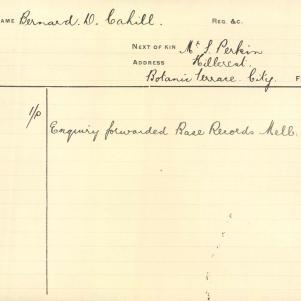 NAME Bernard. D. Cahill. REG. &C.
NEXT OF KIN Mr S. Perkin
ADDRESS Hillcrest.
Botanic Terrace. City. F
1/0
Enquiry forwarded Base Records Melb.